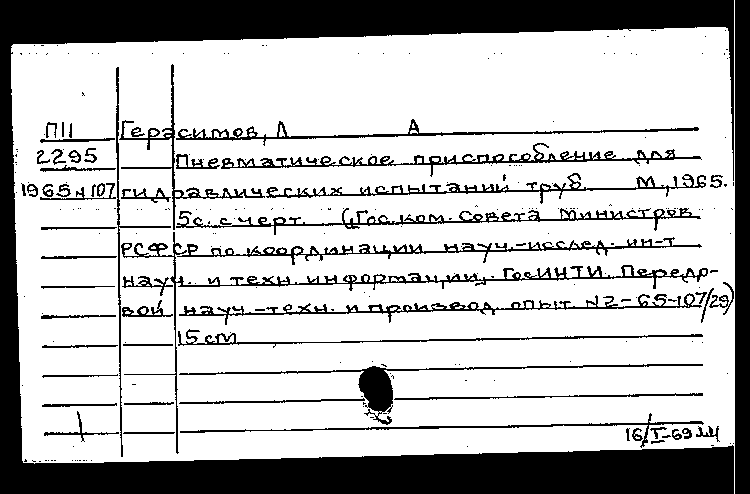 ПII Герасимов, Л А
2295 Пневматическое приспособление для
1965 н 107 гидравлических испытаний труб М., 1965.
5с. с черт. (Гос. ком. Совета Министров
РСФСР по координации науч.-исслед. ин-т
науч. и техн. информации. ГосИНТИ. Передо-
вой науч.-техн. и производ. опыт №2-65-107/29)
15 см
16/I-69